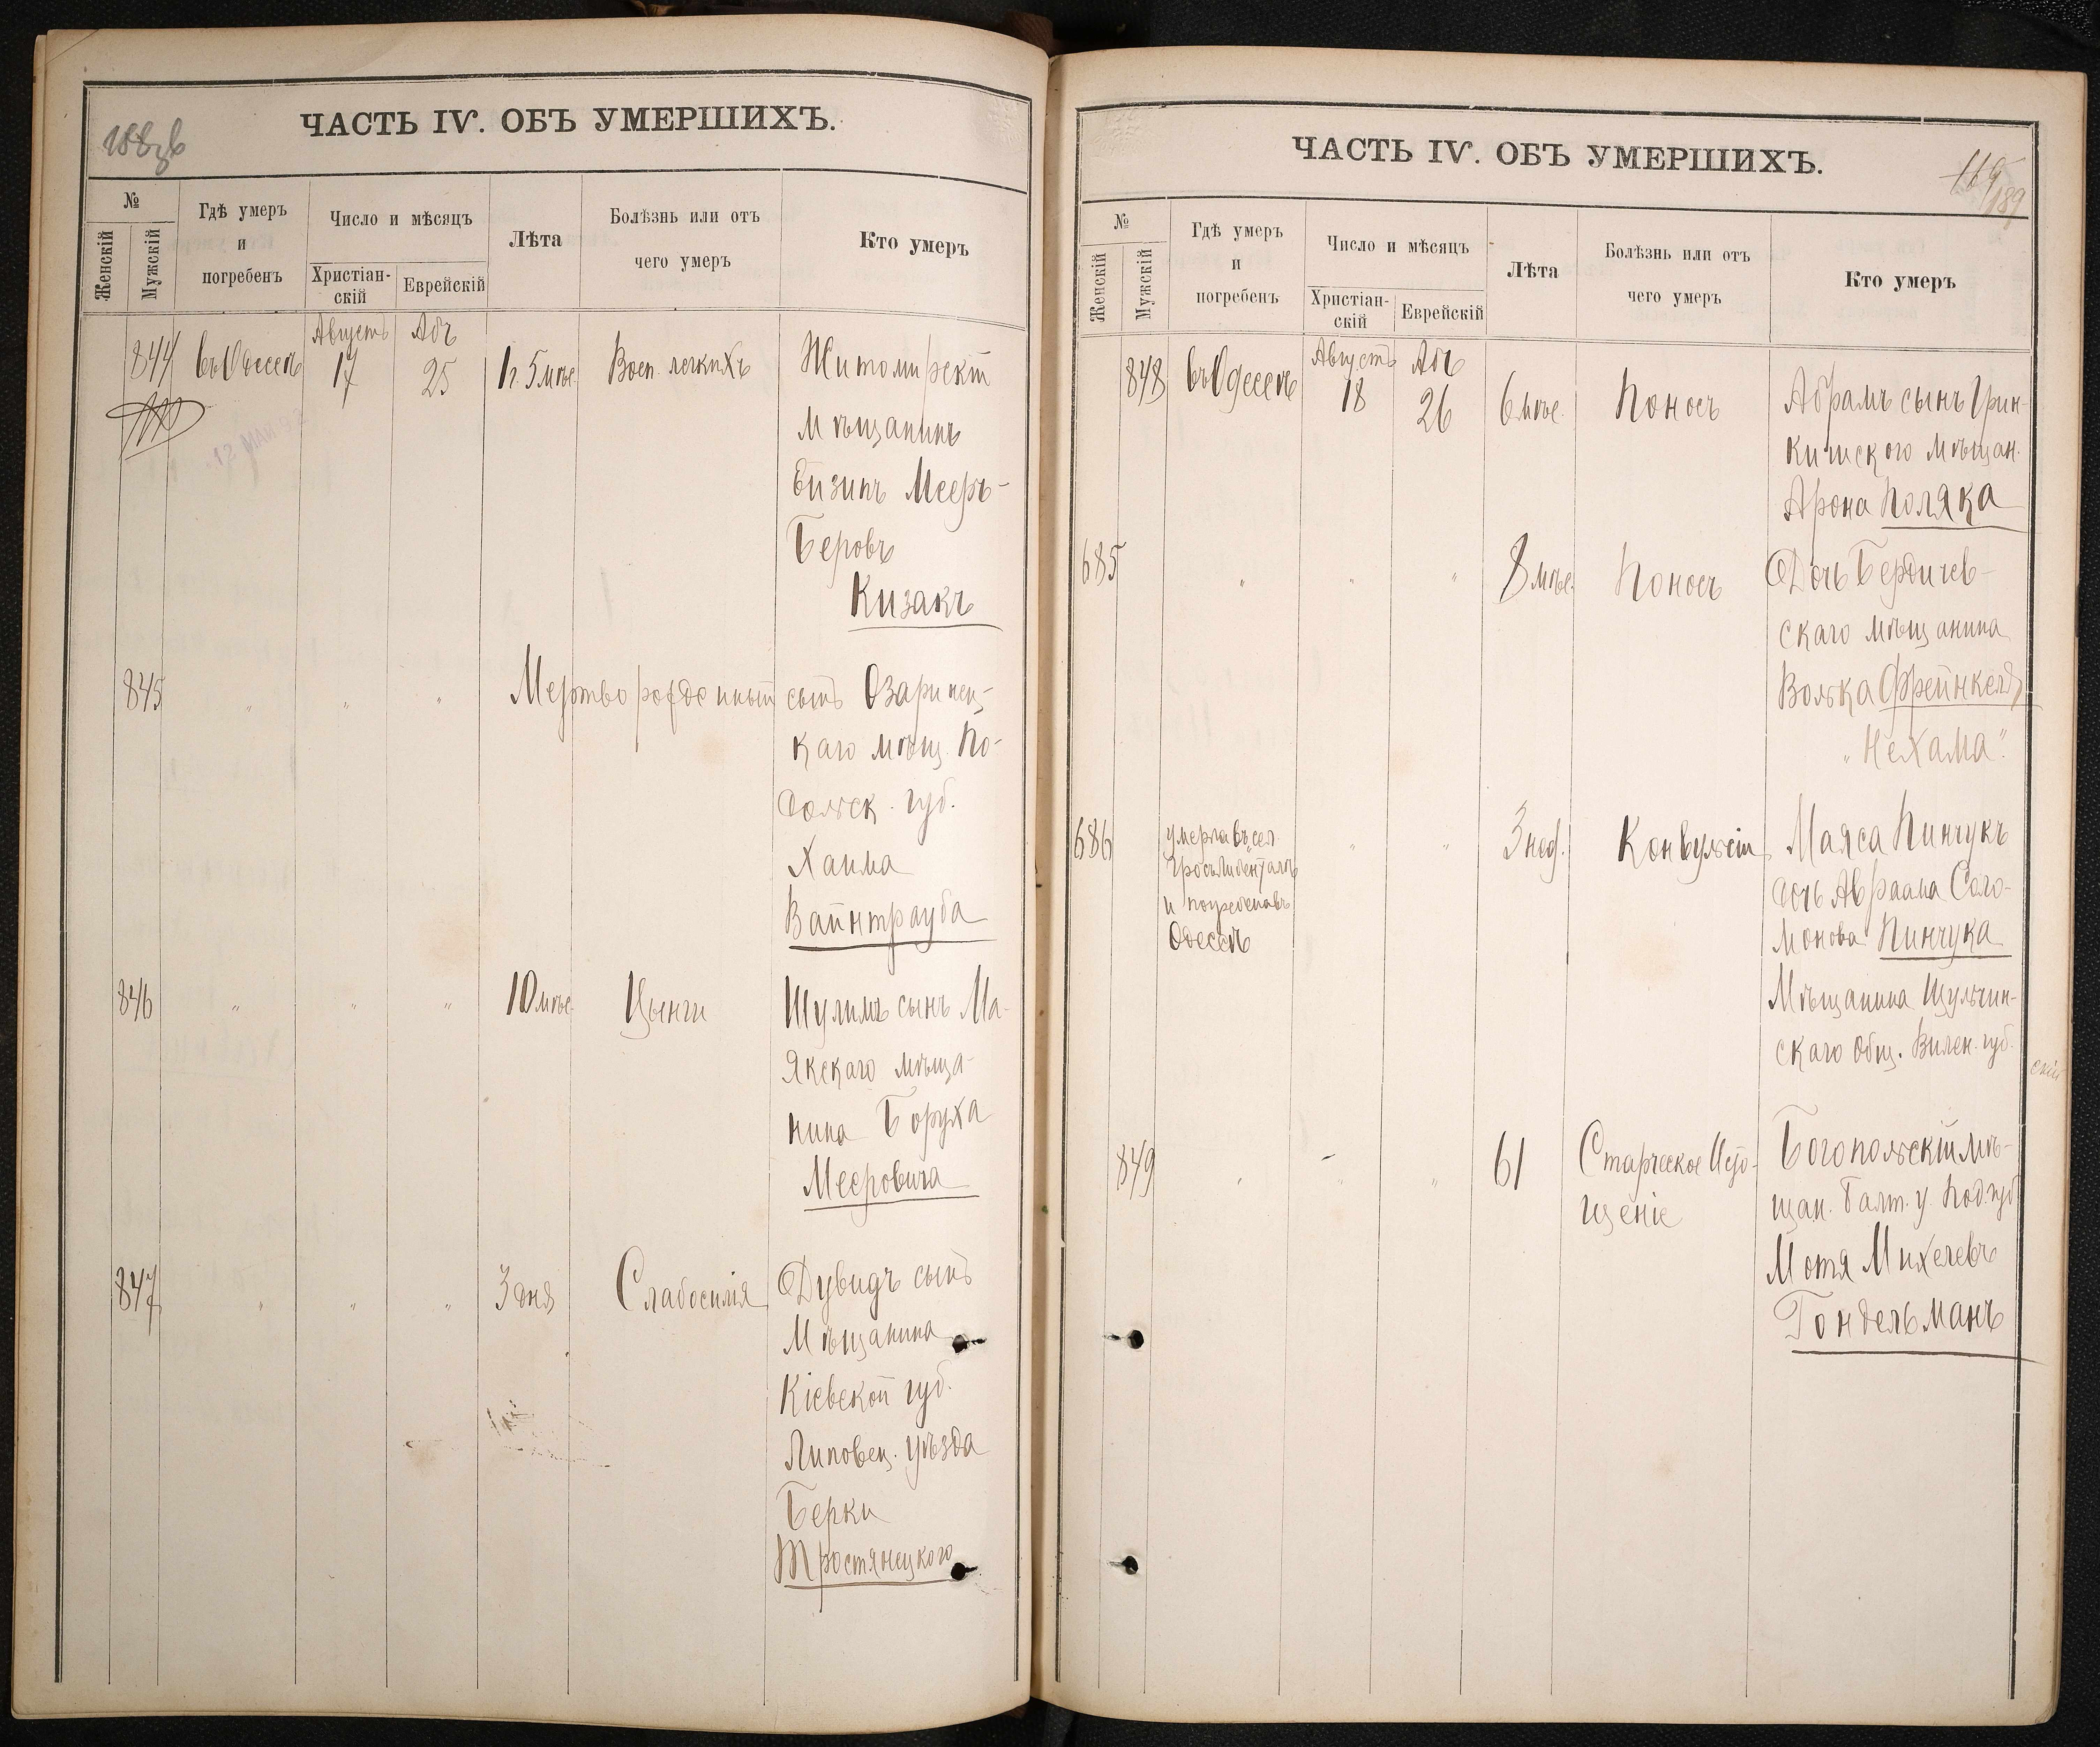 ЧАСТЬ IV. ОБЪ УМЕРШИХЪ.
№
Женскій
Мужскій
Гдѣ умеръ
и
погребенъ
Число и мѣсяцъ
Христіан-
скій
Еврейскій
Лѣта
Болѣзнь или отъ
чего умеръ
Кто умеръ
844
въ Одессѣ
Августъ
17
Абъ
25
1г. 5 мѣс.
Восп. легкихъ
Житомирскій
мѣщанинъ
Ейзикъ Мееръ-
Беровъ
Кизакъ
845
"
"
"
Мертворожденный
сынъ Озаринец-
каго мѣщ. По-
дольск. губ.
Хаима
Вайнтрауба
846
"
"
"
10 мѣс.
Цынги
Шулимъ сынъ Ма-
якскаго мѣща-
нина Боруха
Мееровича
847
"
"
"
3 дня
Слабосилія
Дувидъ сынъ
Мѣщанина
Кіевской губ.
Липовец. уѣзда
Берки
Тростянецкого
ЧАСТЬ IV. ОБЪ УМЕРШИХЪ.
119
189
№
Женскій
Мужскій
Гдѣ умеръ
и
погребенъ
Число и мѣсяцъ
Христіан-
скій
Еврейскій
Лѣта
Болѣзнь или отъ
чего умеръ
Кто умеръ
848
въ Одессѣ
Августъ
18
Абъ
26
6 мѣс.
Поносъ
Абрамъ сынъ Грин-
кишского мѣщан.
Арона Поляка
685
"
"
"
8 мѣс.
Поносъ
Дочь Бердичев-
скаго мѣщанина
Волька Френкеля,
"Нехама".
686
умерла въ сел.
Гросълибенталѣ
и погребена въ
Одессѣ
"
"
3 нед.
Конвульсіи
Маяса Пинчукъ
дочь Авраама Соло-
монова Пинчука
Мѣщанина Шульгин-
скаго Общ. Вилен. губ.
скій
849
"
"
"
61
Старческое Исто-
щеніе
Богопольскій мѣ-
щан. Балт. у. Под. губ
Мотя Михелевъ
Гондельманъ